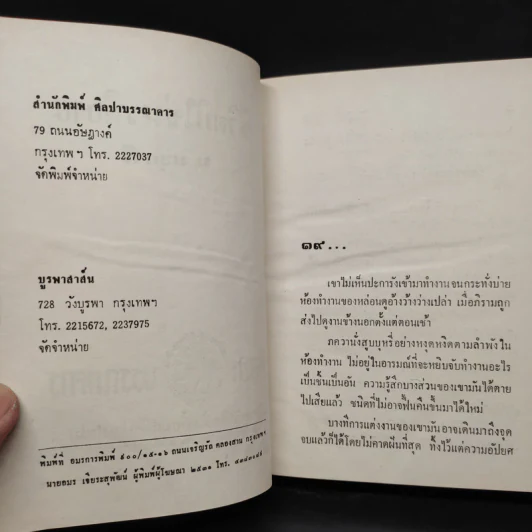 สำนักพิมพ์ ศิลปาบรรณาคาร
79 ถนนอัษฎางค์
กรุงเทพฯ โทร. 2227037
จัดพิมพ์จำหน่าย
บูรพาสาส์น
728 วังบูรพา กรุงเทพฯ
โทร. 2215672, 2237975
จัดจำหน่าย
พิมพ์ที่ อมรการพิมพ์ ๕๐๐/๑๕-๑๖ ถนนเจริญรัถ คลองสาน กรุงเทพฯ
นายอมร เจียระสุพัฒน์ ผู้พิมพ์ผู้โฆษณา ๒๕๓๑ โทร.
๑๙...
เขาไม่เห็นปะการังเข้ามาทำงานจนกระทั่งบ่าย
ห้องทำงานของหล่อนดูอ้างว้างว่างเปล่า เมื่อภิรามถูก
ส่งไปดูงานข้างนอกตั้งแต่ตอนเช้า
ภควานั่งสูบบุหรี่อย่างหงุดหงิดตามลำพังใน
ห้องทำงาน ไม่อยู่ในอารมณ์ที่จะหยิบจับทำงานอะไร
เป็นชิ้นเป็นอัน ความรู้สึกบางส่วนของเขามันได้ตาย
ไปเสียแล้ว ชนิดที่ไม่อาจฟื้นคืนขึ้นมาได้ใหม่
บางทีการแต่งงานของเขามันอาจเดินมาถึงจุด
จบแล้วก็ได้โดยไม่คาดฝันที่สุด ทิ้งไว้แต่ความอัปยศ